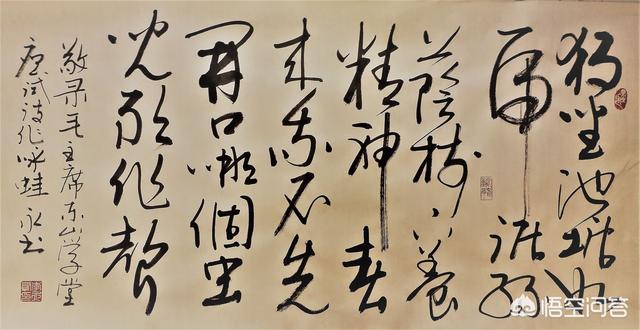 独坐池塘如
虎踞绿
荫树下養
精神春
来我不先
開口哪個虫
兒敢作聲
敬录毛主席东山学堂
应试诗作咏蛙 永书
悟空问答